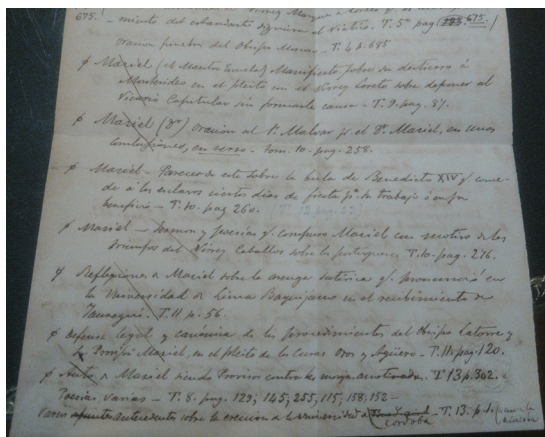 675.) Virrey
miento del estandarte siguiera el Viático. T. 5º pag 675.)
Oración funebre del Obispo Moscoso - T. 4 p. 685
ø Maciel (el Maestre Escuela) Manifiesto sobre su destierro á
Montevideo en el pleito con el Virrey Loreto sobre deponer al
Vicario Capitular sin formarle causa - T. 9. pag. 87.
ø Maciel (Dr) Oracion al P. Malvar p. el Dr. Maciel, en unas
conclusiones, en verso - Tom. 10 - pag. 258.
ø Maciel - Parecer de este sobre la bula de Benedicto XIV q. conce-
de á los esclavos ciertos dias de fiesta pa. su trabajo ó en su
beneficio - T. 10. pag 260.
ø Maciel - y poesias q. compuso Maciel con motivo de los
triunfos del Virrey Ceballos sobre los portugueses T. 10. pag. 276.
ø Reflexiones de Maciel sobre la arenga q. pronunció en
la Universidad de Lima Baquijano en el recibimiento de
Jauregui. T. 11 p. 56.
ø Defensa legal y canónica de los procedimientos del Obispo Latorre y
Provisor Maciel, en el pleito de los Curas Oros y Agüero. T. 11. pag. 120.
ø Auto de Maciel siendo Provisor contra las T. 13 p. 302.
Poesias varias - T. 8. pag. 129, 145, 255, 115, 158, 152 -
Varios antecedentes sobre la ereccion de la Universidad de Cordoba - T. 13. p. 1